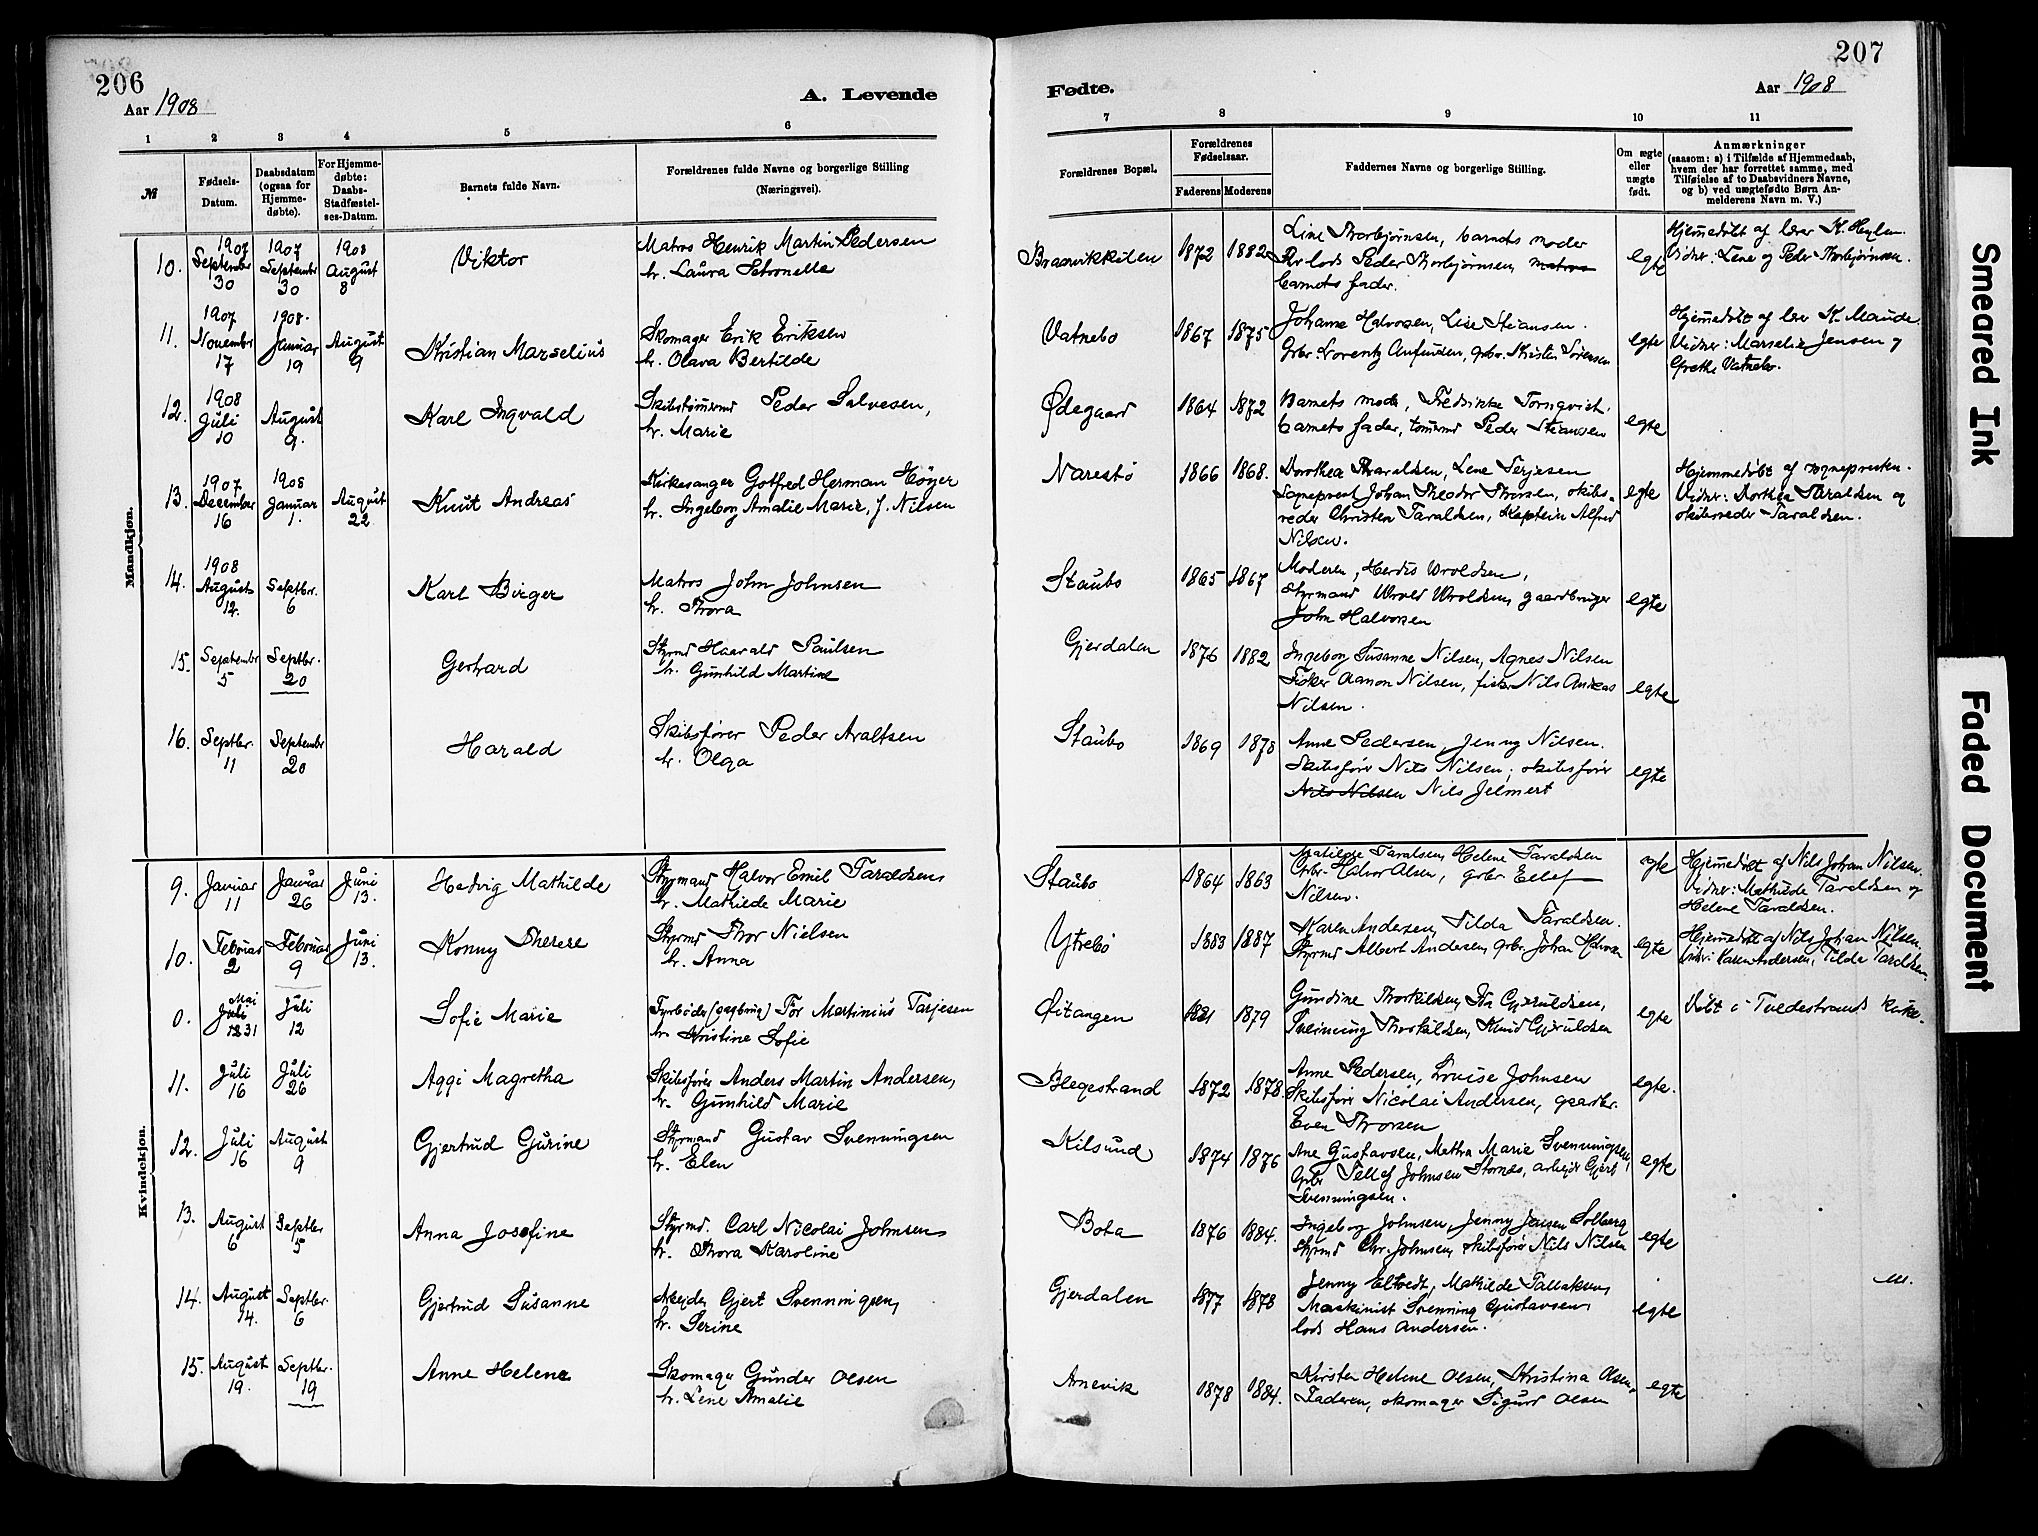 206
Aar 1908
A. Levende
1 2 3 4 5 6
№
Fødsels-Datum.
Daabsdatum (ogsaa for Hjemme-døbte).
For Hjemme-døbte: Daabs-Stadfæstel-ses-Datum.
Barnets fulde Navn.
Forældrenes fulde Navne og borgerlige Stilling
(Næringsvei).
Mandkjøn.
10. 1907 September 30 1907 September 30 1908 August 8 Viktor
Matros Henrik Martin Pedersen
h. Laura Petronelle
11. 1907 November 17 1908. Januar 19 August 9 Kristian Marselius
Skomager Erik Eriksen
h. Olava Bertilde
12. 1908 Juli 10 August 9. Karl Ingvald
Skibstømmermd Peder Salvesen,
h. Marie
13. 1907 December 16 1908 Januar 1. August 22 Knut Andreas
Kirkesanger Gotfred Herman Höyer
h. Ingeborg Amalie Marie, f. Nilsen
14. 1908 August 12. Septbr. 6 Karl Birger
Matros John Johnsen
h. Thora
15. September 5 Septbr. 20 Gerhard
Styrmd Haarald Paulsen
h. Gunhild Martine
16. Septbr. 11 September 20 Harald
Skibsfører Peder Araltsen
h. Olga
Kvindekjøn.
9. Januar 11 Januar 26 Juni 13. Hedvig Mathilde
Styrmand Halvor Emil Taraldsen
h. Mathilde Marie
10. Februar 2 Februar 9 Juni 13. Konny Therese
Styrmd Thor Nielsen
h. Anna
0. Mai Juli 31 Juli 12 Sofie Marie
Fyrbøder Tor Martinius Tarjesen
h. Kristine Sofie
11. Juli 16 Juli 26 Aggi Magretha
Skibsfører Anders Martin Andersen,
h. Gunhild Marie
12. Juli 16 August 9 Gjertrud Gurine
Styrmand Gustav Svenningsen
h. Elen
13. August 6 Septbr 5 Anna Josefine
Styrmd. Carl Nicolai Johnsen
h. Thora Karoline
14. August 14. Septbr. 6 Gjertrud Susanne
Arbejder Gjert Svenningsen,
h. Serine
15. August 19. Septbr. 19 Anne Helene
Skomager Gunder Olsen
h. Lene Amalie
207
Fødte.
Aar 1908
7 8 9 10 11
Forældrenes Bopæl.
Forældrenes Fødselsaar.
Faderens Moderens
Faddernes Navne og borgerlige Stilling.
Om ægte eller uægte født.
Anmærkninger
(saasom: a) i Tilfælde af Hjemmedaab,
hvem der har forrettet samme, med
Tilføielse af to Daabsvidners Navne,
og b) ved uægtefødte Børn An-
melderens Navn m. V.)
Braavikkilen 1872 1882 Line Thorbjørnsen, barnets moder
lods Peder Thorbjørnsen, matros
barnets fader.
egte
Hjemmedøbt af lærer K.
Vidner: Lene og Peder Thorbjørnsen.
Vatnebo 1867 1875 Johanne Halvorsen, Lise Steansen.
Grbr. Lorentz Anfinsen, grbr. Kristen Sørensen
egte
Hjemmedøbt af lærer K. Maude.
Vidner: Marselie Jensen og
Grethe Vatnebo.
Ødegaard 1864 1872 Barnets moder, Fredrikke Tornqvist.
barnets fader, tømmermd Peder Steansen
egte
Narestø 1866 1868. Dorothea Taraldsen, Lene Terjesen
Sogneprest Johan Theodor Thorsen, skibs-
reder Christen Taraldsen, Kaptein Alfred
Nilsen.
egte
Hjemmedøbt af sognepresten.
Vidner: Dorthea Taraldsen og
skibsreder Taraldsen.
Staubo 1865 1867 Moderen, Herdis Wroldsen,
Styrmand Wrold Wroldsen, gaardbruger
John Halvorsen
egte
Gjerdalen 1876 1882 Ingeborg Susanne Nilsen, Agnes Nilsen
Fisker Aanon Nilsen, fisker Nils Andreas
Nilsen.
egte
Staubo 1869 1878 Anne Pedersen, Jenny Nilsen.
Skibsfører Nils Nilsen; skibsfører
Nils Nilsen Nils Jelmert
egte
Staubo 1864 1863 Matilde Taraldsen, Helene Taraldsen
Grbr. Halvor Olsen, grbr Ellef
Nilsen.
egte
Hjemmedøbt af Nils Johan Nilsen.
Vidner: Mathilde Taraldsen og
Helene Taraldsen.
Ytrebø 1883 1887 Karen Andersen, Tilda Taraldsen.
Styrmd Albert Andersen, grbr. Johan Halvorsen
egte
Hjemmedøbt af Nils Johan Nilsen.
Vidner: Karen Andersen, Tilda Taraldsen.
1879 Gundine Thorkildsen, Ida Gjeruldsen,
Svenning Thorkildsen, Knud Gjeruldsen
egte
Døbt i Tvedestrands kirke.
Blegestrand 1872 1878. Anne Pedersen, Lovise Johnsen
Skibsfører Nicolai Andersen, gaardbr.
Even Thorsen
egte.
Kilsund 1874 1876 Ane Gustavsen, Mathea Marie Svenningsen,
Grbr Tellef Johnsen Stornes, arbejder Gjert
Svenningsen.
egte
Bota 1876 1884. Ingeborg Johnsen, Jenny Jensen Solberg
styrmd Chr. Johnsen, skibsfører Nils Nilsen
egte
Gjerdalen 1877 1878 Jenny Eltvedt, Mathilde Tallaksen,
Maskinist Svenning Gustavsen,
lods Hans Andersen.
egte
Arnevik 1878 1884. Kirsten Helene Olsen, Kristina Olsen,
Faderen, skomager Sigurd Olsen
egte
Smeared Ink
Faded Document